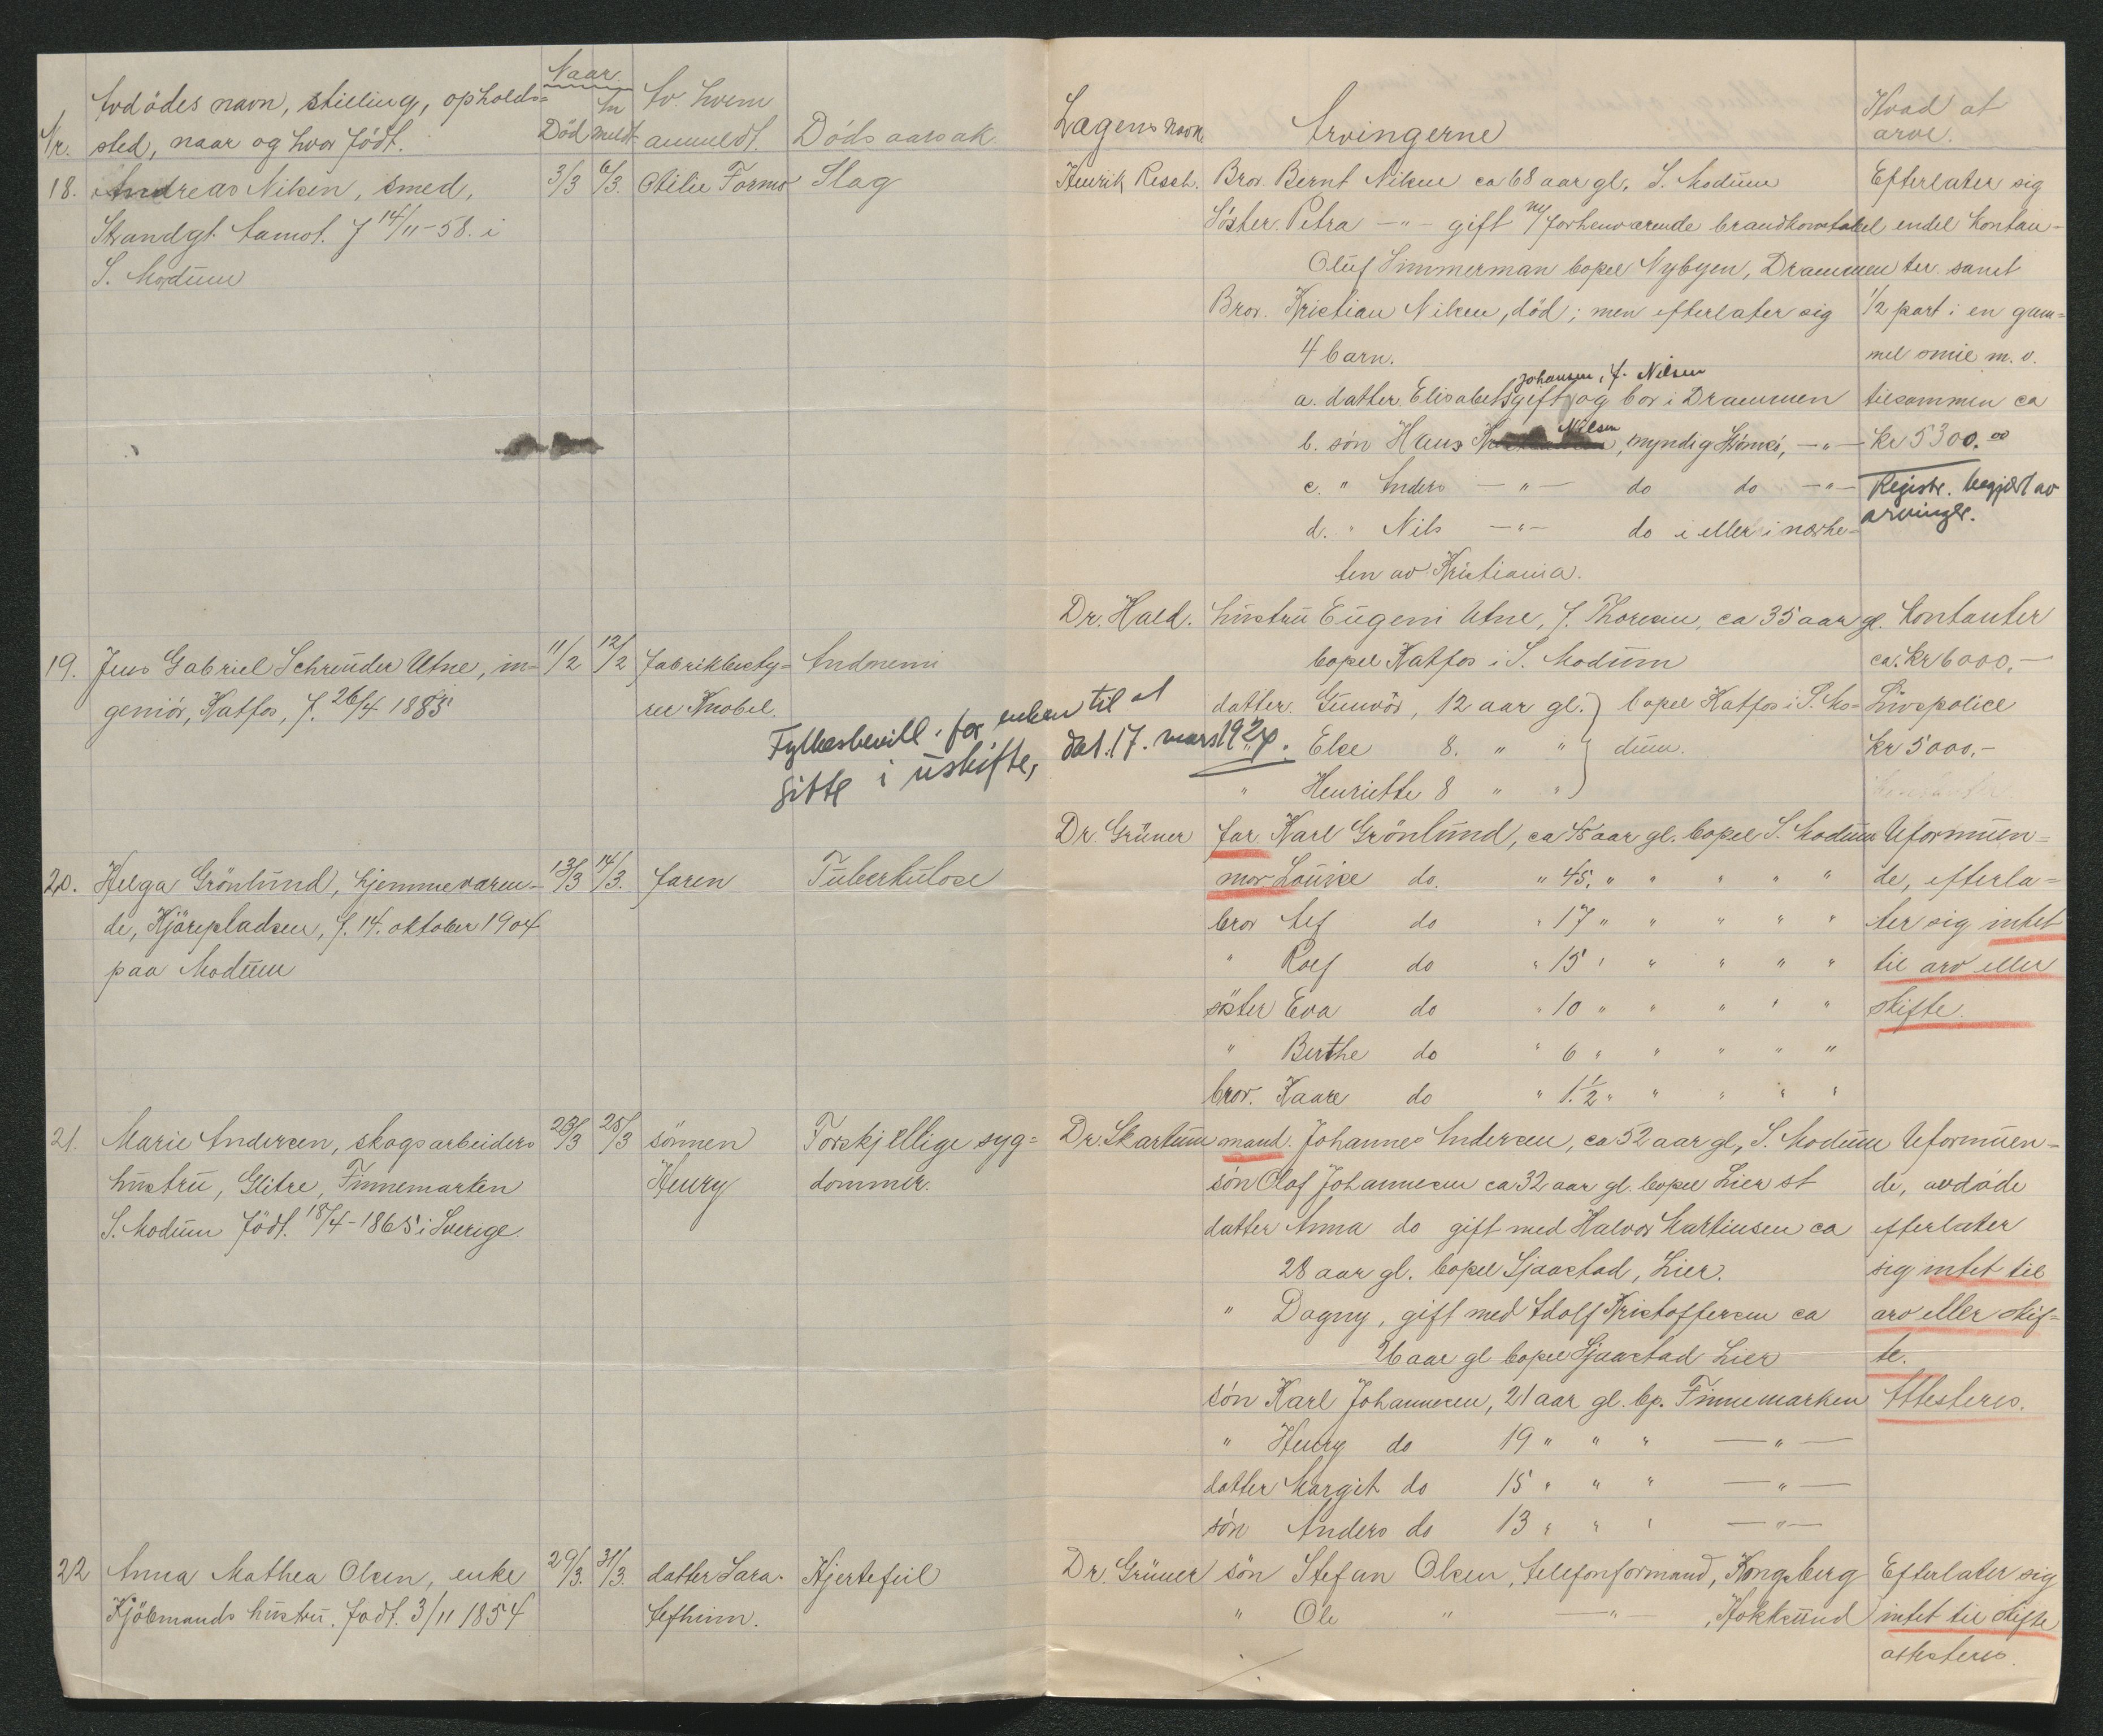 Naar
Nr.
Avdødes navn, stilling, opholds=
sted, naar og hvor født.
Død
An
meldt
Av hvem
anmeldt.
Dødsaarsak
18. Andreas Nilsen, smed, 3/3 6/3. Otilie Formo Slag
Strandgt. Aamot. f 14/11-58. i
S. Modum
19. Jens Gabriel Schreuder Utne, in- 11/2 12/2 fabrikbesty= Andnemi
geniör, Katfos, f. 26/4 1885 rer Knobel.
Fylkesbevill. for enken til at
sitte i uskifte, dat. 17. mars 1920.
20. Helga Grönlund, hjemmeværen- 13/3 14/3. faren Tuberkulose
de, Kjörepladsen, f. 14. oktober 1904
paa Modum
21. Marie Andersen, skogsarbeiders 23/3 25/3 sönnen Forskjellige syg=
hustru, Glitre, Finnemarken Henry dommer.
S. Modum Född. 18/4-1865 i Sverige.
22 Anna Mathea Olsen, enke 29/3. 31/3. datter Sara. Hjertefeil
Kjöbmands hustru. född. 3/11 1854
Lægens navn Arvingerne Hvad at
arve.
Henrik Resch. Bror. Bernt Nilsen ca 68 aar gl. S. Modum Efterlater sig
Söster. Petra -"- gift m/ forhenværende brandkonstabel endel kontan-
Oluf Simmerman bopel Nybyen, Drammen ter samt
Bror. Kristian Nilsen, död; men efterlater sig 1/2 part i en gam=
4 barn. mel smie m. v.
Johansen, f. Nilsen
a. datter Elisabeth gift og bor i Drammen tilsammen ca
b. sön Hans Nilsen, myndig -"- kr 5300.00
c. " Anders -"- do do -"- Registr. begjært av
d. " Nils -"- do i eller i nærhe- arvinger.
ten av Kristiania.
Dr. Hald. hustru Eugeni Utne, f. Thoresen, ca 35 aar gl. Kontanter
bopel Katfos i S. Modum ca. kr 6000.-
datter. Gunvör, 12 aar gl. } bopel Katfos i S. Mo= Livspolice
" Else 8. " " dum. kr 5000,-
" Henriette 8 " "
Dr. Grüner far Karl Grönlund, ca 45 aar gl. bopel S. Modum Uformuen=
mor Louise do. " 45. " " " " " de, efterla=
bror Alf do " 17 " " " " " ter sig intet
" Rolf do " 15 " " " " " til arv eller
söster Eva do " 10 " " " " " skifte.
" Berthe do " 6 " " " " "
bror. Kaare do " 1.1/2 " " " " "
Dr. Skartum mand. Johannes Andersen, ca 52 aar gl, S. Modum Uformuen=
sön Olaf Johannesen ca 32 aar gl. bopel Lier st de, avdöde
datter Anna do gift med Halvor Martinsen ca efterlater
28 aar gl. bopel Sjaastad, Lier. sig intet til
" Dagny, gift med Adolf Kristoffersen ca arv eller skif=
26 aar gl bopel Sjaastad Lier te.
sön Karl Johannesen, 21 aar gl. bp. Finnemarken Attesteres.
" Henry do 19 " " " -"-
datter Margit do 15 " " " -"-
sön Anders do 13 " " " -"-
Dr. Grüner sön Stefan Olsen, telefonformand, Kongsberg Efterlater sig
" Ole " -"- , Hokksund intet til skifte
attesteres.